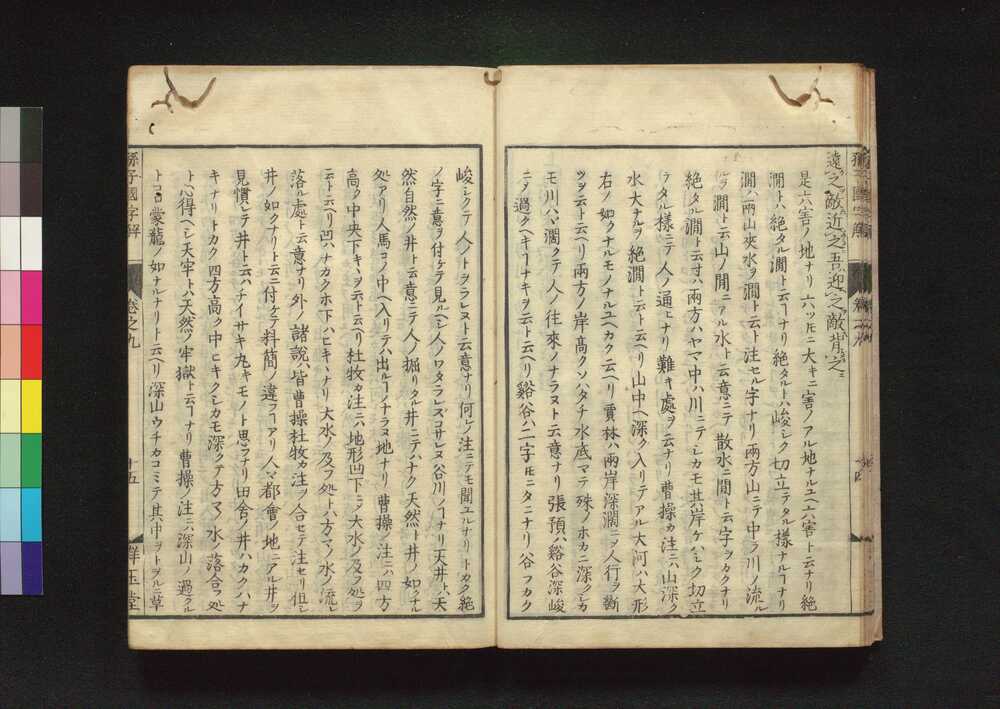 遠之敵近之吾迎之敵背之
是六害ノ地ナリ六ツトモニ大キニ害ノアル地ナルユヘ六害ト云ナリ絶
澗トハ絶タル澗ト云コナリ絶タルトハ峻シク切立テタル様ナルコナリ
澗ハ両山夾水ヲ澗ト云ト注セル字ナリ両方山ニテ中ヲ川ノ流ル
ルヲ澗ト云山ノ間ニアル水ト云意ニテ散水ニ間ト云字ヲカクナリ
絶タル澗ト云寸ハ両方ハヤマ中ハ川ニテシカモ其岸ケハシク切立
ヲタル様ニテ人ノ通ヒナリ難キ處ヲ云ナリ曹操カ注ニハ山深ク
水大ナルヲ絶澗ト云ト云ヘリ山中ヘ深ク入リテアル大河ハ大形
右ノ如クナルモノナルユヘカク云ヘリ賈林ハ両岸深濶ニメ人行ヲ断
ツヲ云ト云ヘリ両方ノ岸高クソハタチ水底マテ殊ノホカニ深クシカ
モ川ハヽ濶クテ人ノ往來ノナラヌト云意ナリ張預ハ谿谷深峻
ニメ過クヘキコナキヲ云ト云ヘリ谿谷ハ二字トモニタニナリ谷フカク
峻シクテ人ノトヲラレヌト云意ナリ何レノ注ニテモ聞ユルナリトカク絶
ノ字ニ意ヲ付ケテ見ルヘシ人ノワタラレスコサレヌ谷川ノコナリ天井トハ天
然自然ノ井ト云意ニテ人ノ掘リタル井ニテハナク天然ト井ノ如クナル
処アリ人馬コノ中ヘ入リテハ出ルコノナラヌ地ナリ曹操ノ注ニハ四方
高ク中央下キヽヲ云ト云ヘリ杜牧カ注ニハ地形凹下ニメ大水ノ及フ処ヲ
云ト云ヘリ凹ハナカクホ下ハヒキヽナリ大水ノ及フ処トハ方マノ水ノ流レ
落ル處ト云意ナリ外ノ諸説ハ皆曹操杜牧カ注ヲ合セテ注セリ但シ
井ノ如クナリト云ニ付ケテ料簡ノ違フコアリ人マ都會ノ地ニアル井ヲ
見慣レテ井ト云ハチイサキ丸キモノト思フナリ田舎ノ井ハカクハナ
キナリトカク四方高ク中ヒキクシカモ深クテ方マノ水ノ落合フ処
ト心得ヘシ天牢トハ天然ノ牢獄ト云コナリ曹操ノ注ニハ深山ノ過クル
トコロ蒙籠ノ如ナルナリト云ヘリ深山ウチカコミテ其中ヲトヲルニ草
孫子國字解
卷之九
十五
群玉堂